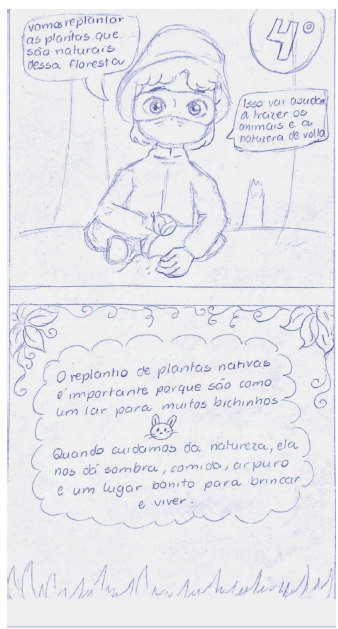 vamos replantar
as plantas que
são naturais
dessa floresta
4º
Isso vai ajudar
a trazer os
animais e a
natureza de volta
O replantio de plantas nativas
é importante porque são como
um lar para muitos bichinhos
Quando cuidamos da natureza, ela
nos dá sombra, comida, ar puro
e um lugar bonito para brincar
e viver.